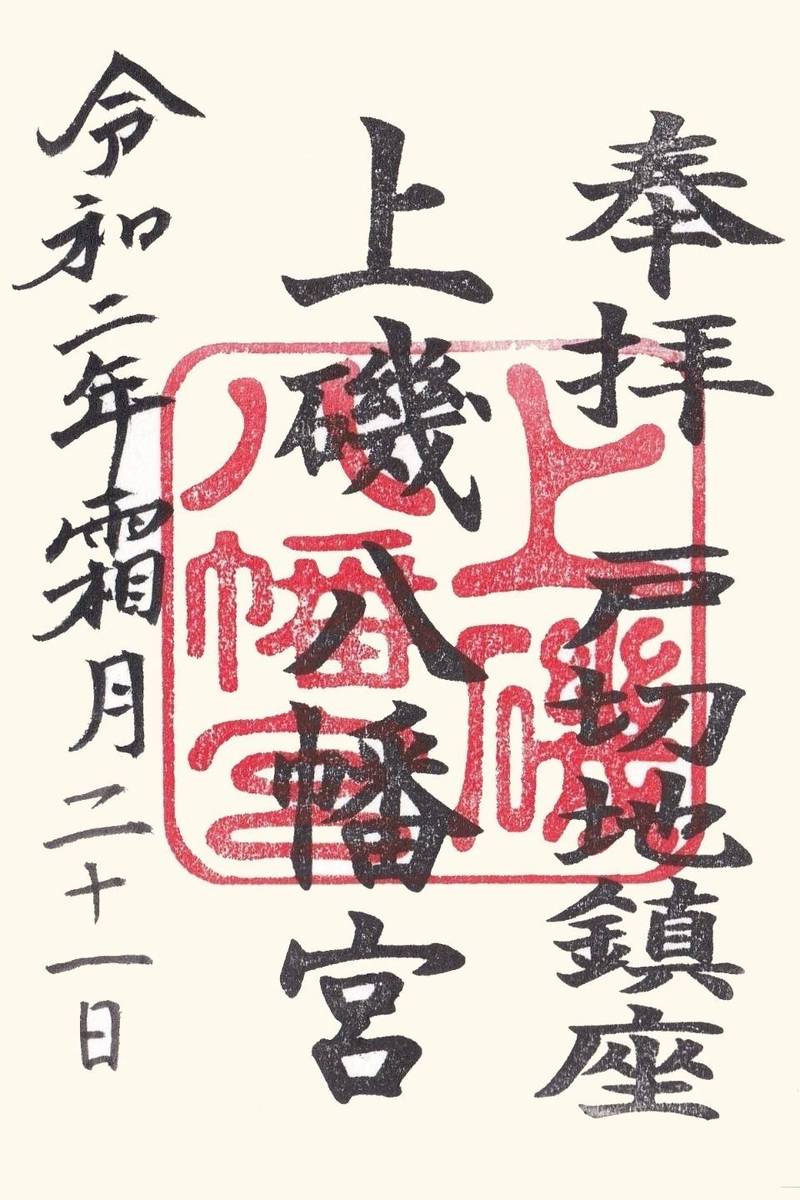 奉拝 戸切地鎮座
上磯八幡宮
令和二年霜月二十一日
上磯
八幡宮